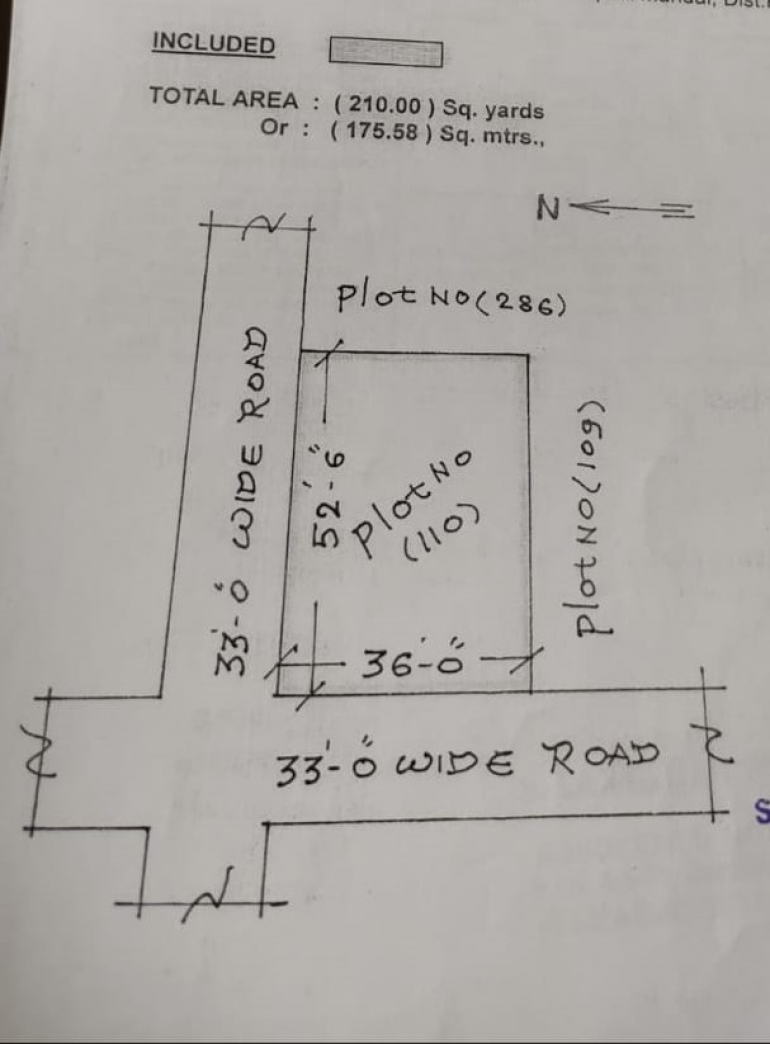 INCLUDED
TOTAL AREA : ( 210.00 ) Sq. yards
Or : ( 175.58 ) Sq. mtrs.,
N
Plot NO (286)
33'-0" WIDE ROAD
52'-6"
Plot NO
(110)
Plot NO (109)
36'-0"
33'-0" WIDE ROAD
S